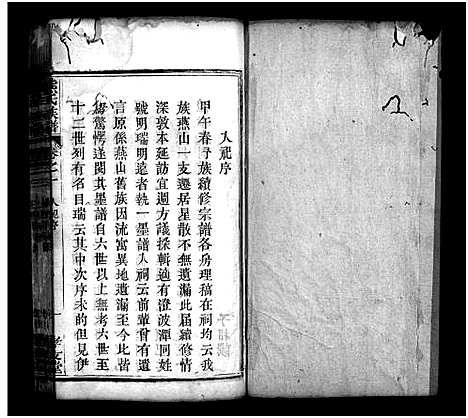 入祀序
甲午春予族續修宗譜各房理稿在祠均云我
族燕山一支遷居星散不無遺漏此屆續修情
深敦本延訪宜週方議採輯適有澄波源同姓
號瑞明遠者執一墨譜入祠云前輩曾有遺
言原係燕山舊族因流寓異地遺漏至今比皆
驚愕遂閱其墨譜自六世以上無考六世至
十三世列有名目瑞云其中次序未的但見伊
氏 譜
卷之
入祀序
一